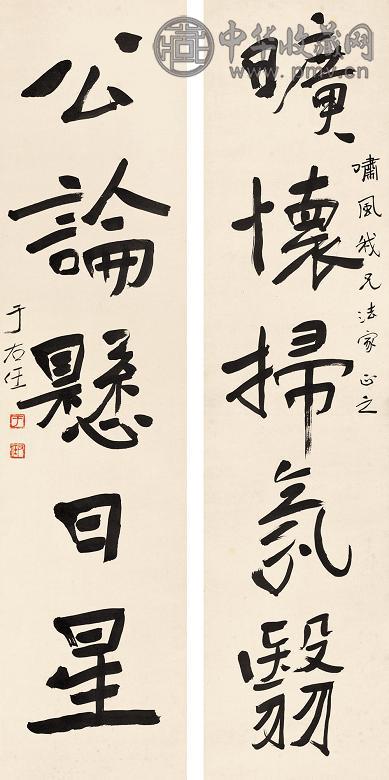 中华收藏网
www.pmv.cn
曠懷掃氛翳
嘯風我兄法家正之
公論懸日星
于右任